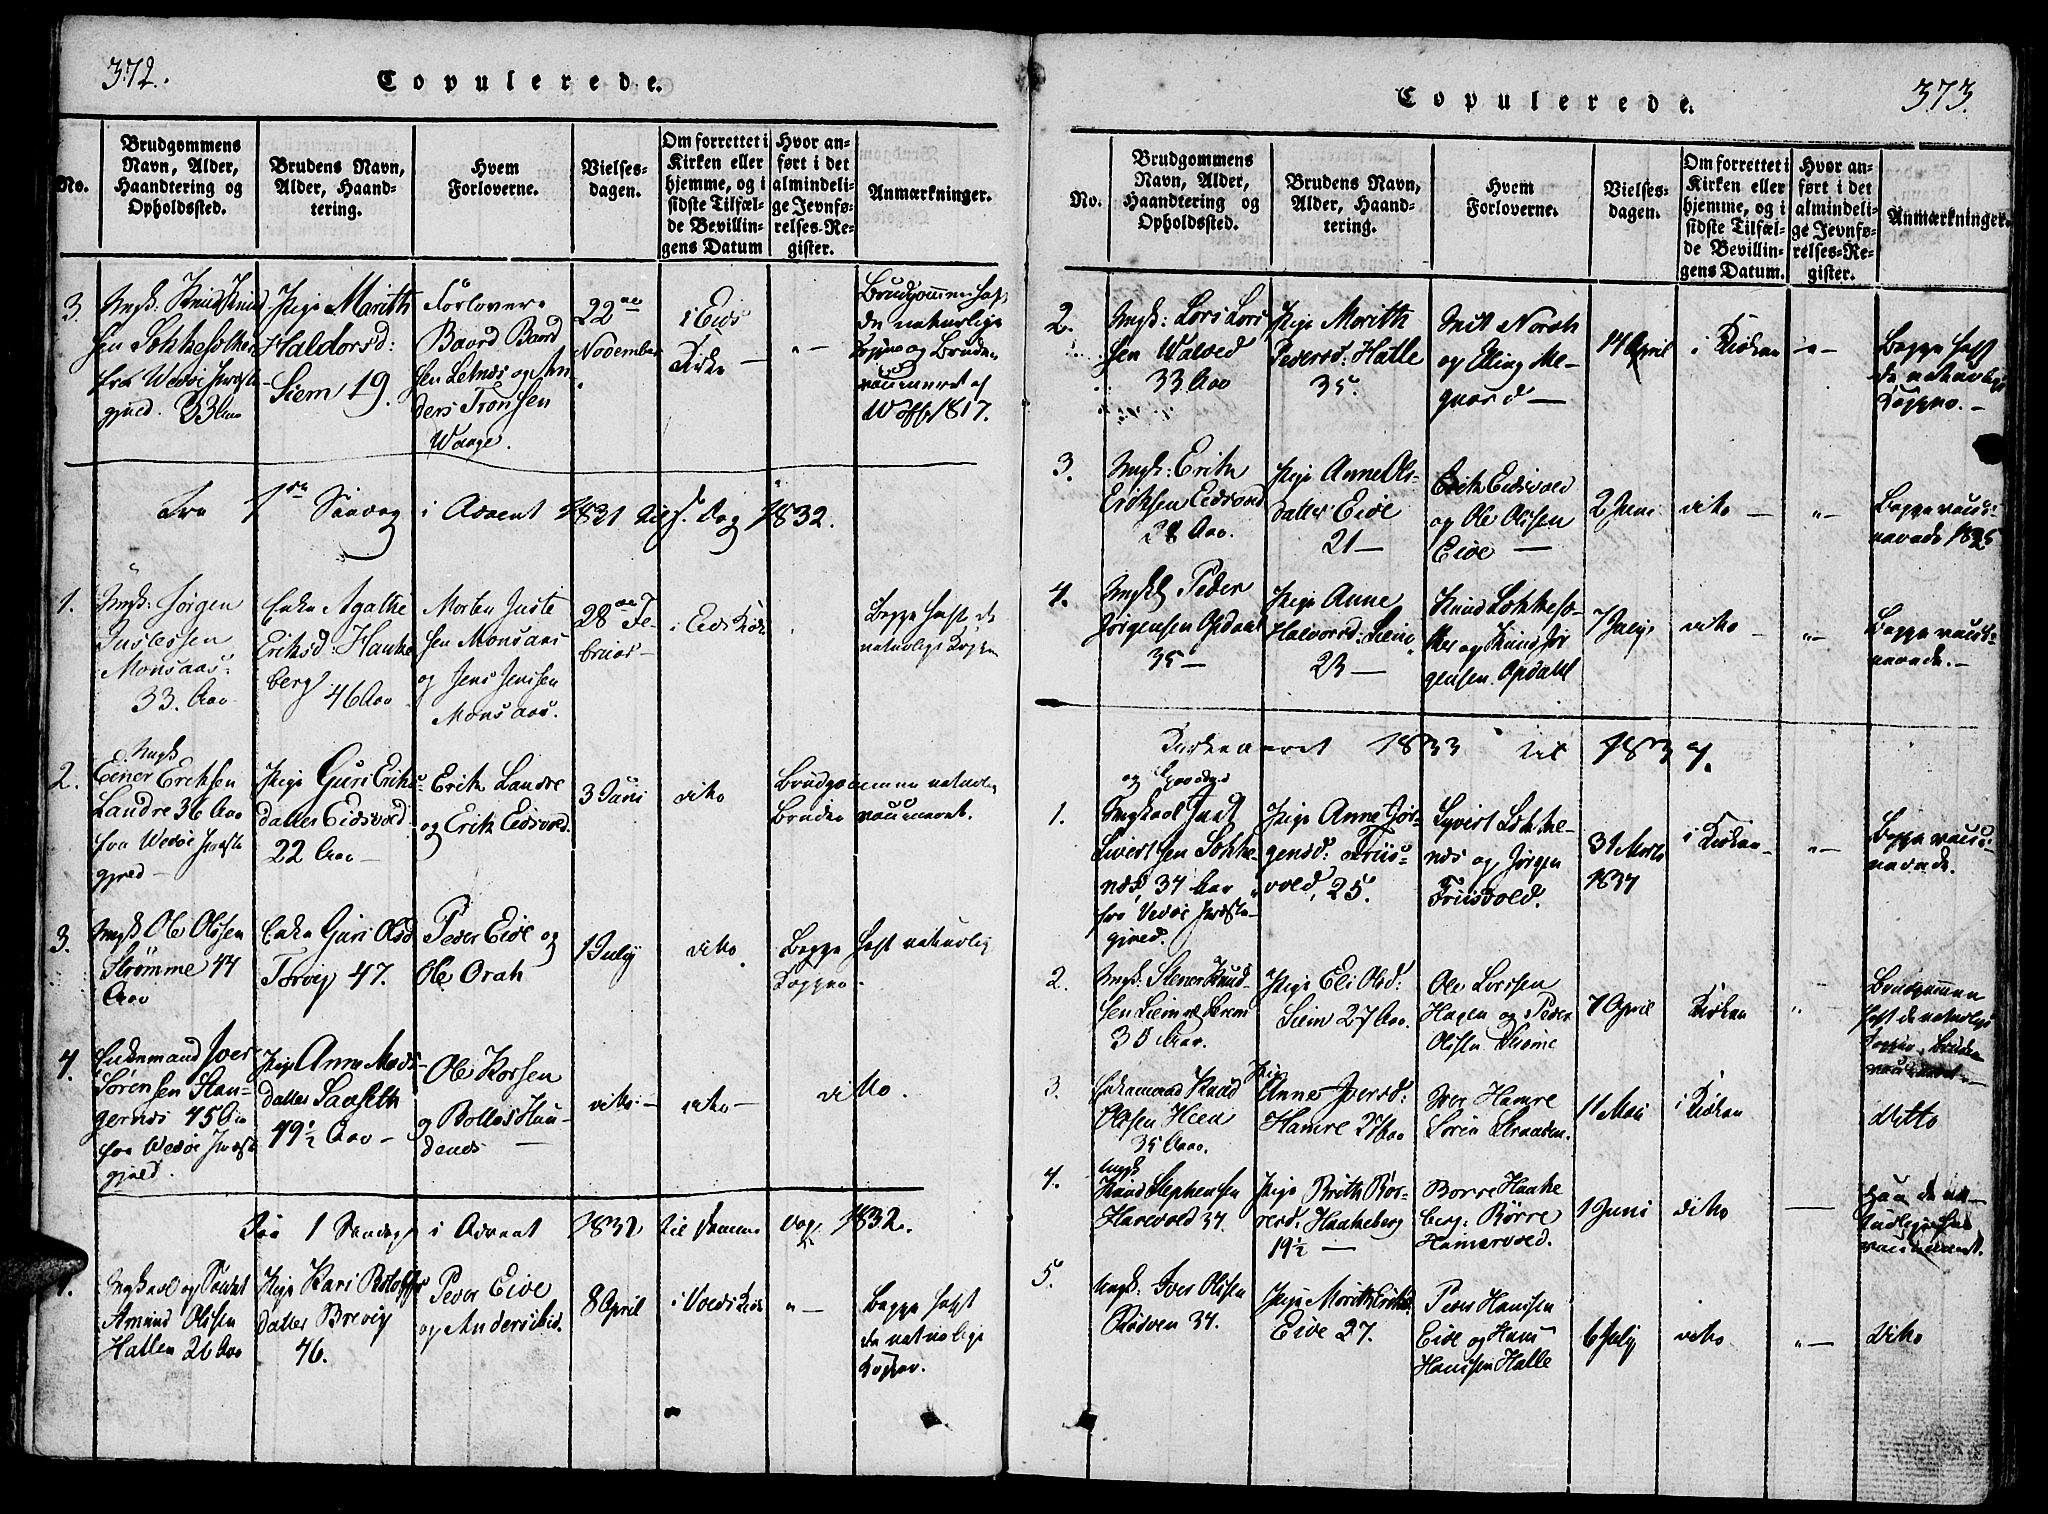 372.
Copulerede.
No.
Brudgommens
Navn, Alder,
Haandtering og
Opholdssted.
Brudens Navn,
Alder, Haand-
tering.
Hvem
Forloverne.
Vielses-
dagen.
Om forrettet i
Kirken eller
hjemme, og i
sidste Tilfæl-
de Bevillin-
gens Datum
Hvor an-
ført i det
almindeli-
ge Jevnfø-
relses-Re-
gister.
Anmærkninger.
3.
Ungk: Knud Knud
sen Sokkesother
fra Wedøe Præste
gjeld. 33 Aar
Pige Marith
Haldorsd:
Siem 19.
Forlovere
Baard Baard
sen Letnes og An
ders Tronsen
Waage.
22de
November
i Eids
Kirke
"—
Brudgommen haft
de naturlige
Kopper og Bruden
vaccineret af
1817.
Fra 1ste Søndag i Advent 1831 til s. Dag 1832.
1.
Ungk: Jørgen
Justessen
Monsaas
33. Aar
Enke Agathe
Eriksd: Hauke
berg 46 Aar
Morten Juste
sen Monsaas
og Jens Jensen
Monsaas.
28de Fe-
bruar
i Eids Kirke
Begge haft de
naturlige Kopper
2.
Ungk
Einer Eriksen
Landre 36 Aar
fra Wedøe Præste
gjeld —
Pige Guri Eriks
datter Eidsvold
22 Aar —
Erik Landre
og Erik Eidsvold.
3 Juni
dito
Brudgommen naturl.
Bruden vaccineret.
3.
Ungk Ole Olsen
Strømme 44
Aar
Enke Guri Olsd
Torvig 47.
Peder Eide og
Ole Orah
1 July
dito
Begge haft naturlig
Kopper.
4.
Enkemand Iver
Sørensen Stan-
gernes 45 Aar
fra Wedøe Præste
gjeld.
Pige Anne Mads-
datter Sanseth
19½ Aar —
Ole Korsen
og Bolles Hun-
denes —
dito —
dito —
dito
Fra 1 Søndag i Advent 1832 til samme Dag 1832.
1.
Ungkarl og Soldat
Amund Olsen
Hatlen 26 Aar
Pige Kari Rolofs
datter Brevig
46.
Peder Eide
og Anders
8 April
i Voeds Kirke
"—
Begge haft
de naturlige
Kopper.
373.
Copulerede.
No.
Brudgommens
Navn, Alder,
Haandtering og
Opholdssted.
Brudens Navn,
Alder, Haand-
tering.
Hvem
Forloverne.
Vielses-
dagen.
Om forrettet i
Kirken eller
hjemme, og i
sidste Tilfæl-
de Bevillin-
gens Datum.
Hvor an-
ført i det
almindeli-
ge Jevnfø-
relses-Re-
gister.
Anmærkninger.
2.
Ungk: Lars Lars
sen Walsed
33 Aar
Pige Morith
Pedersd: Hatle
35.
Norah
og Elling Me-
gaard —
14 April
i Kirken
"—
Begge haft
de naturlige
Kopper. —
3.
Ungk: Erik
Eriksen Eidsvold
28 Aar.
Pige Anne Ols-
datter Eide
21 —
Erik Eidsvold
og Ole Olsen
Eide —
2 Juni
dito —
"—
Begge vacci-
nerede 1825
4.
Ungk Peder
Jørgensen Opdal
35 —
Pige Anne
Halvorsd: Siem
23 —
Knud Lokkeso-
ther og Knud Jør
gensen Opdahl
7 July
dito —
"—
Begge vacci-
nerede. —
Kirkeaaret 1833 til 1834.
1.
og
Ungkarl Juul
Sivertsen Sokke-
næs 34 Aar
fra Vedøe Præste-
gjeld.
Pige Anne Jør-
gensd: Friis-
vold, 25.
Syvert Sokke-
næs og Jørgen
Friisvold.
31 Marts
1834
i Kirken —
"—
Begge vacci-
nerede.
2.
Ungk: Stener Knud-
sen Siem
38 Aar.
Pige Eli Olsd:
Siem 27 Aar.
Ole Larsen
Hagen og Peder
Olsen
7 April
Kirken
"
Brudgommen
haft de naturlige
Kopper. Bruden
vaccineret. —
3.
Enkemand Knud
Olsen Hien
35 Aar.
Pige
Anne Iversd:
Hamre 27 Aar
Iver Hamre
Søren Straaden.
11 Mai
i Kirken
ditto
4.
Ungk
Knud Stephensen
Harevold 34.
Pige Brith Bør-
resd: Haukeberg
19½ —
Børre Hauke
berg: Børre
Hamervold.
1 Juni
dito
—
Han de na-
turlige hun
vaccineret.
5.
Ungk: Iver Olsen
Rødven 34.
Pige Morith Eriksd
Eide 27.
Peder Hansen
Eide og Hans
Hansen Hatle
6 July
dito
"—
dito